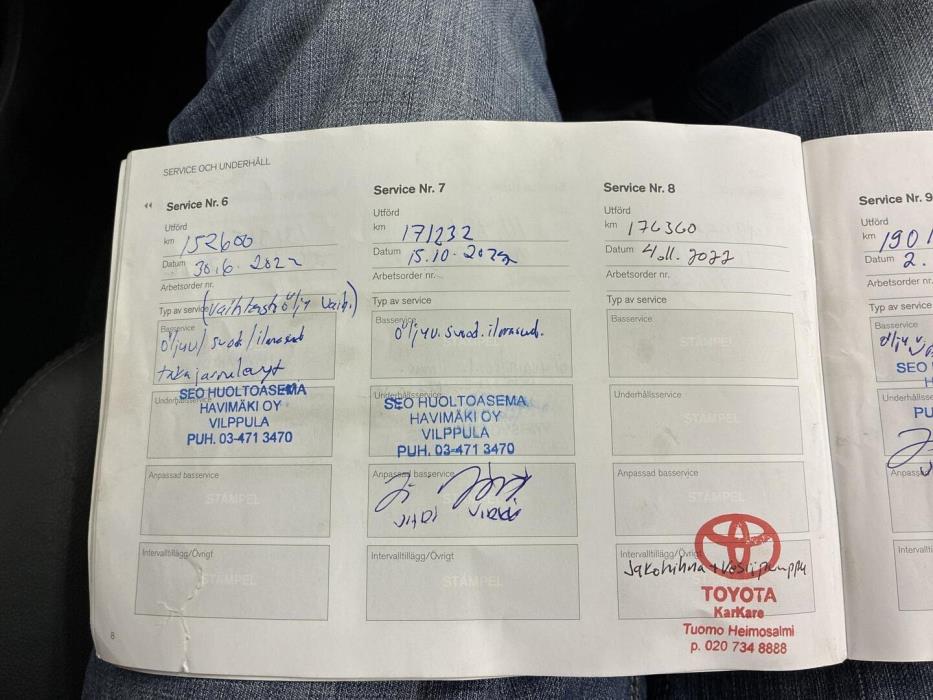 SERVICE OCH UNDERHÅLL
Service Nr. 6
Utförd
km 152600
Datum 30.6.2022
Arbetsorder nr.
Typ av service
Basservice
öljyv/ suod./
Underhållsservice
SEO HUOLTOASEMA
HAVIMÄKI OY
VILPPULA
PUH. 03-471 3470
Anpassad basservice
STÄMPEL
Intervalltillägg/Övrigt
STÄMPEL
8
Service Nr. 7
Utförd
km 171232
Datum 15.10.2022
Arbetsorder nr.
Typ av service
Basservice
öljyv. suod. ilmasuod.
Underhållsservice
SEO HUOLTOASEMA
HAVIMÄKI OY
VILPPULA
PUH. 03-471 3470
Anpassad basservice
Intervalltillägg/Övrigt
STÄMPEL
Service Nr. 8
Utförd
km 176360
Datum 4.11.2022
Arbetsorder nr.
Typ av service
Basservice
STÄMPEL
Underhållsservice
STÄMPEL
Anpassad basservice
STÄMPEL
Intervalltillägg/Övrigt
Jakohihna + Vesipumppu
TOYOTA
KarKare
Tuomo Heimosalmi
p. 020 734 8888
Service Nr. 9
Utförd
km 190
Datum 2.
Arbetsorder nr.
Typ av service
Basservice
SEO
Underhållsse
PU
Anpassad
Intervallti